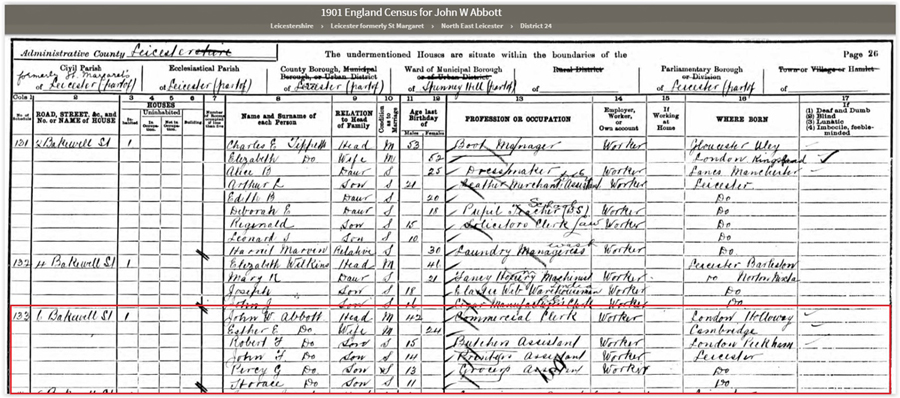 1901 England Census for John W Abbott
Leicestershire › Leicester formerly St Margaret › North East Leicester › District 24
Administrative County Leicestershire The undermentioned Houses are situate within the boundaries of the Page 26
Civil Parish Ecclesiastical Parish County Borough, Municipal Borough, or Urban District Ward of Municipal Borough or of Urban District Rural District Parliamentary Borough or Division Town or Village or Hamlet
formerly St. Margaret's
of Leicester (part of of Leicester (part of of Leicester (part of of Spinney Hill (part of of of Leicester (part of of
Cols 1 2 3 4 5 6 7 8 9 10 11 12 13 14 15 16 17
No. of Schedule ROAD, STREET, &c., and No. or NAME of HOUSE HOUSES Inhabited Uninhabited In Occupation Not in Occupation Building Name and Surname of each Person RELATION to Head of Family Condition as to Marriage Age last Birthday of Males Females PROFESSION OR OCCUPATION Employer, Worker, or Own account If Working at Home WHERE BORN If (1) Deaf and Dumb (2) Blind (3) Lunatic (4) Imbecile, feeble-minded
131 2 Bakewell St 1 Charles E Head M 53 Boot Manager Worker Gloucester Uley
Elizabeth Do Wife M 52 London Kingsland
Alice Daur S 25 Dressmaker Worker Lancs Manchester
Arthur L Son S 21 Leather Merchants Assistant Worker Leicester
Edith B Daur 20 Do
Deborah E Daur S 18 Pupil Teacher School Worker Do
Reginald Son S 15 Solicitors Clerk Law Worker Do
Leonard S Son S 10 Do
Harriet Marvin Relative S 30 Laundry Manageress Wash Worker Do
132 4 Bakewell St 1 Elizabeth Watkins Head M 41 Leicester
Mary Daur S 21 Fancy Hosiery Machinist Worker Do
Joseph Son S 18 Elastic Web Warehouseman Worker Do
John J Son S 16 Clerk Worker Do
133 1 Bakewell St 1 John W Abbott Head M 42 Commercial Clerk Worker London Holloway
Esther E Do Wife M 24 Cambridge
Robert F Do Son S 15 Butchers Assistant Worker London Peckham
John F Do Son S 14 Assistant Worker Leicester
Percy G Do Son S 13 Grocers Assistant Worker Do
Horace Do Son S 11 Do